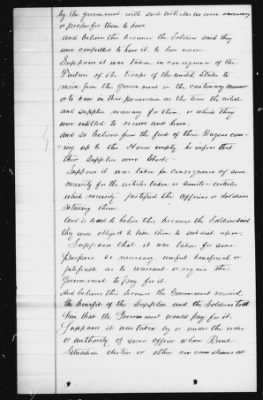 by the government with such articles as were necessary
or proper for them to have
and believes this because the Soldiers said they
were compelled to have it to live now
Suppose it was taken in consequence of the
of the Troops of the United States to
from the Government in the customary manner
or to have in their possession at the time the articles
and supplies necessary for them, or which they
were entitled to receive and have
and so believes from the fact of their Wagons com-
ing up to the House empty he infers that
their Supplies were Short
Suppose it was taken in consequence of some
necessity for the articles taken or similar articles
which necessity justified the officers or Soldiers
taking them
And is lead to believe this because the Soldiers said
they were obliged to have them to subsist upon.
Suppose that it was taken for some
purpose so necessary useful beneficial or
justifiable as to warrant or require the
Government to pay for it.
And believes this because the Government received
the benefit of the Supplies and the Soldiers told
him that the Government would pay for it.
Suppose it was taken by or under the order
or authority of some officer whose Rank
Situation duties or other circumstances at